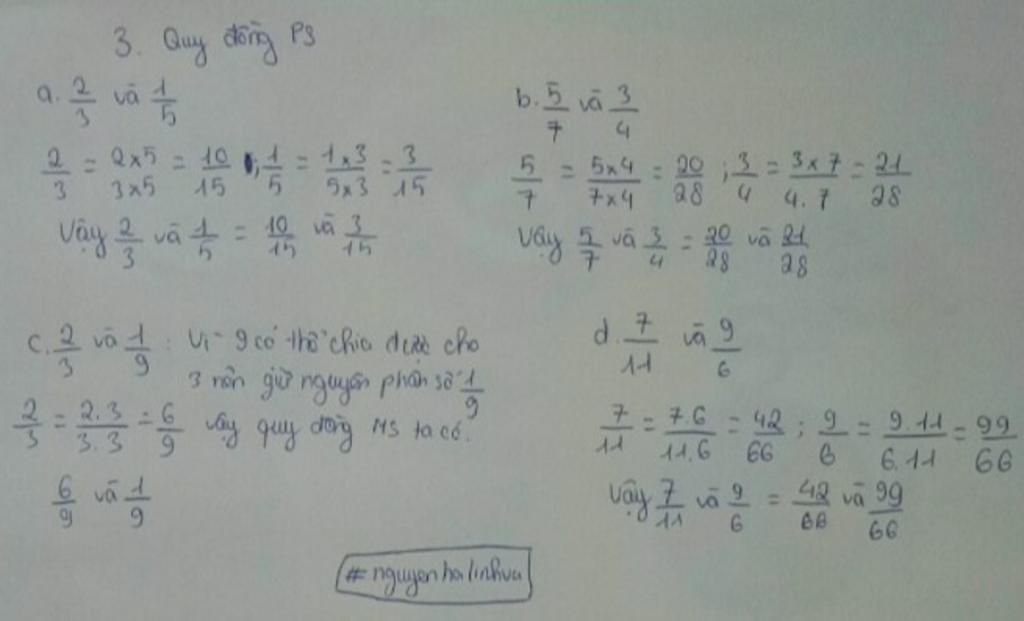 3. Quy đồng PS
a. 2/3 và 1/5
2/3 = 2x5/3x5 = 10/15 ; 1/5 = 1x3/5x3 = 3/15
Vậy 2/3 và 1/5 = 10/15 và 3/15
b. 5/7 và 3/4
5/7 = 5x4/7x4 = 20/28 ; 3/4 = 3x7/4.7 = 21/28
Vậy 5/7 và 3/4 = 20/28 và 21/28
c. 2/3 và 1/9 : Vì 9 có thể chia được cho
3 nên giữ nguyên phân số 1/9
2/3 = 2.3/3.3 = 6/9 vậy quy đồng MS ta có.
6/9 và 1/9
d. 7/11 và 9/6
7/11 = 7.6/11.6 = 42/66 ; 9/6 = 9.11/6.11 = 99/66
Vậy 7/11 và 9/6 = 42/66 và 99/66
#nguyenhalinhvu